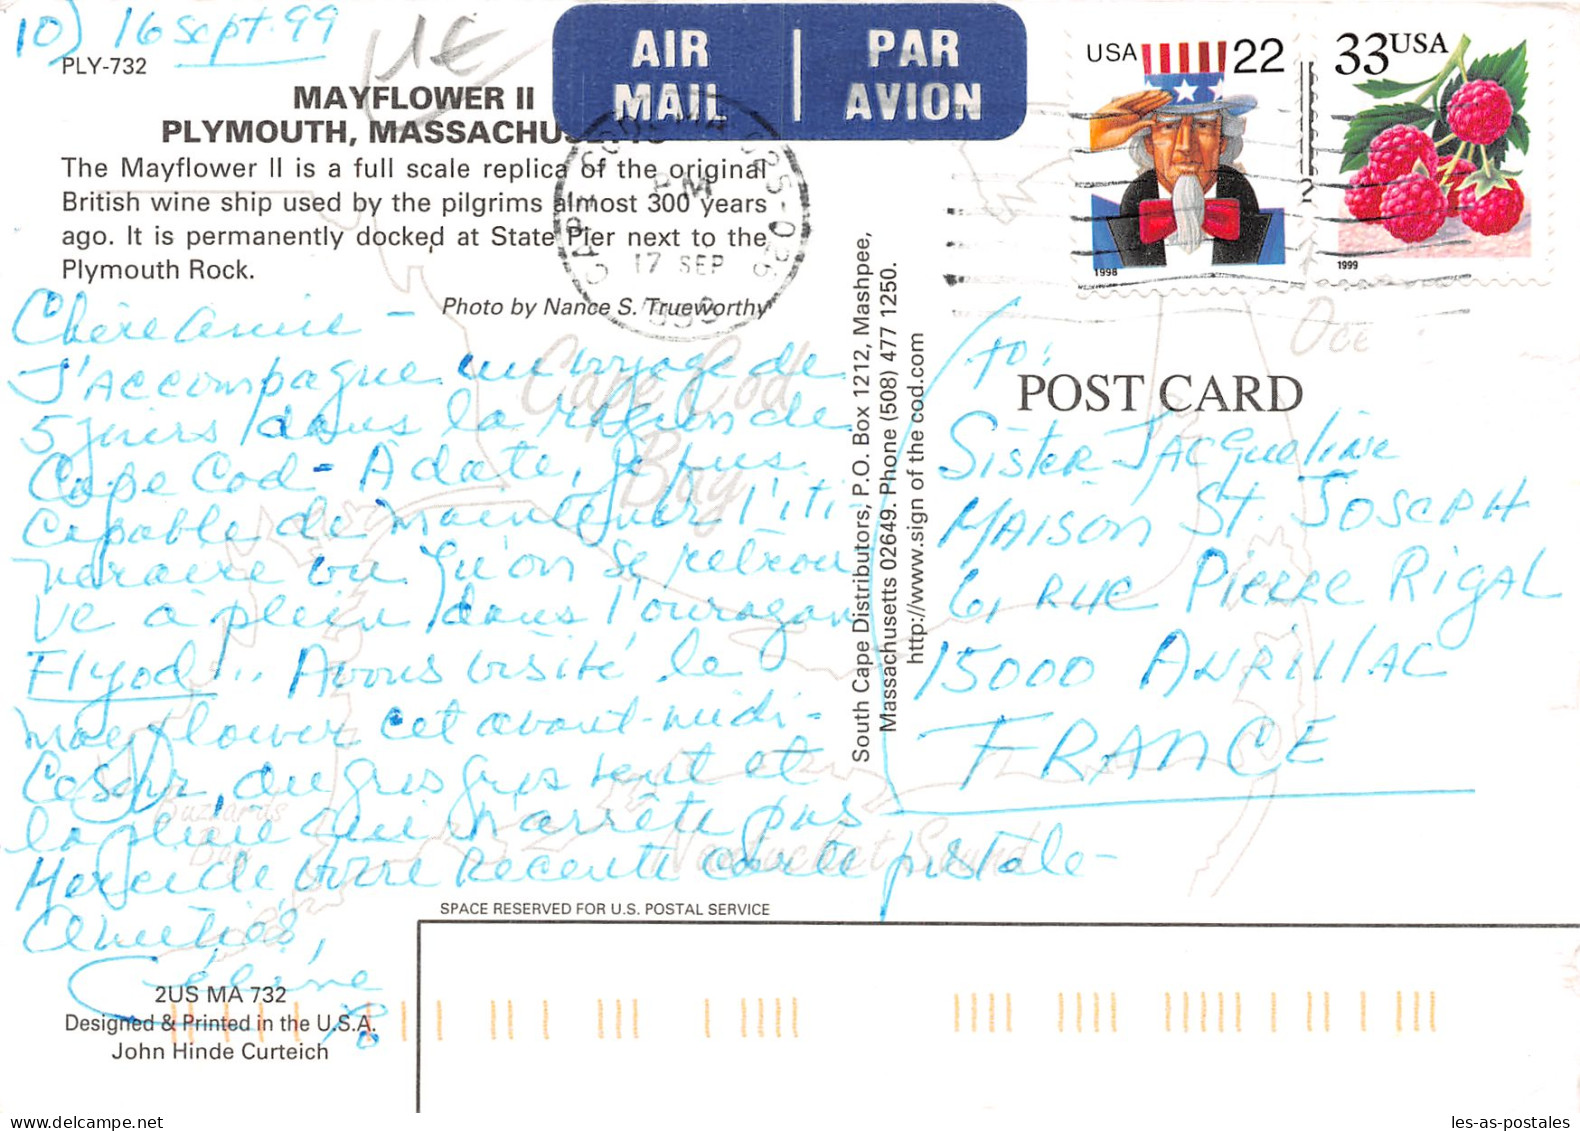 10) 16 sept. 99
1€
PLY-732
MAYFLOWER II
PLYMOUTH, MASSACHUSETTS
The Mayflower II is a full scale replica of the original
British wine ship used by the pilgrims almost 300 years
ago. It is permanently docked at State Pier next to the
Plymouth Rock.
Photo by Nance S. Trueworthy
AIR MAIL | PAR AVION
USA 22
1998
33 USA
1999
CAPE COD MA 025-026
PM
17 SEP
1999
Chère amie -
J'accompagne un voyage de
5 jours dans la région de
Cape Cod - A date, je suis
capable de maintenir l'iti-
néraire ou qu'on se retrou
ve à plein dans l'ouragan
Flyod!.. Avons visité le
mayflower cet avant-midi -
Ce soir, du gris gris vent et
la pluie qui n'arrête pas
Merci de votre récente carte postale -
Amitiés,
Céline
Cape Cod
Bay
Buzzards
Bay
Nantucket Sound
Oce
South Cape Distributors, P.O. Box 1212, Mashpee,
Massachusetts 02649. Phone (508) 477 1250.
http://www.sign of the cod.com
POST CARD
to:
Sister Jacqueline
Maison St. Joseph
6, rue Pierre Rigal
15000 Aurillac
FRANCE
SPACE RESERVED FOR U.S. POSTAL SERVICE
2US MA 732
Designed & Printed in the U.S.A.
John Hinde Curteich
les-as-postales